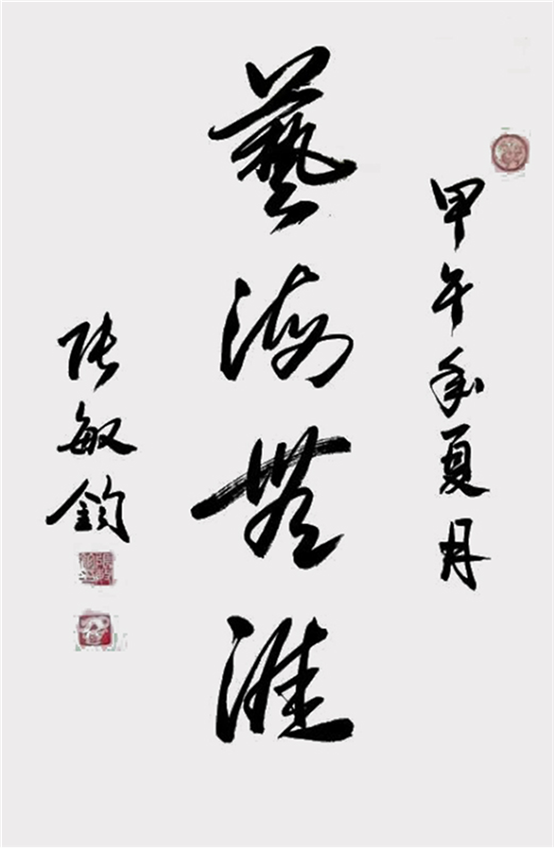 甲午年夏月
藝海無涯
张敏鈞